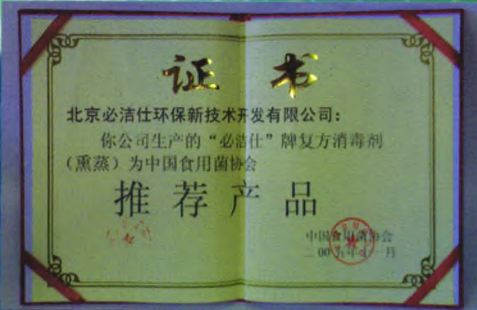 证 书
北京必洁仕环保新技术开发有限公司：
你公司生产的“必洁仕”牌复方消毒剂
（熏蒸）为中国食用菌协会
推 荐 产 品
中国食用菌协会
二00五年十一月